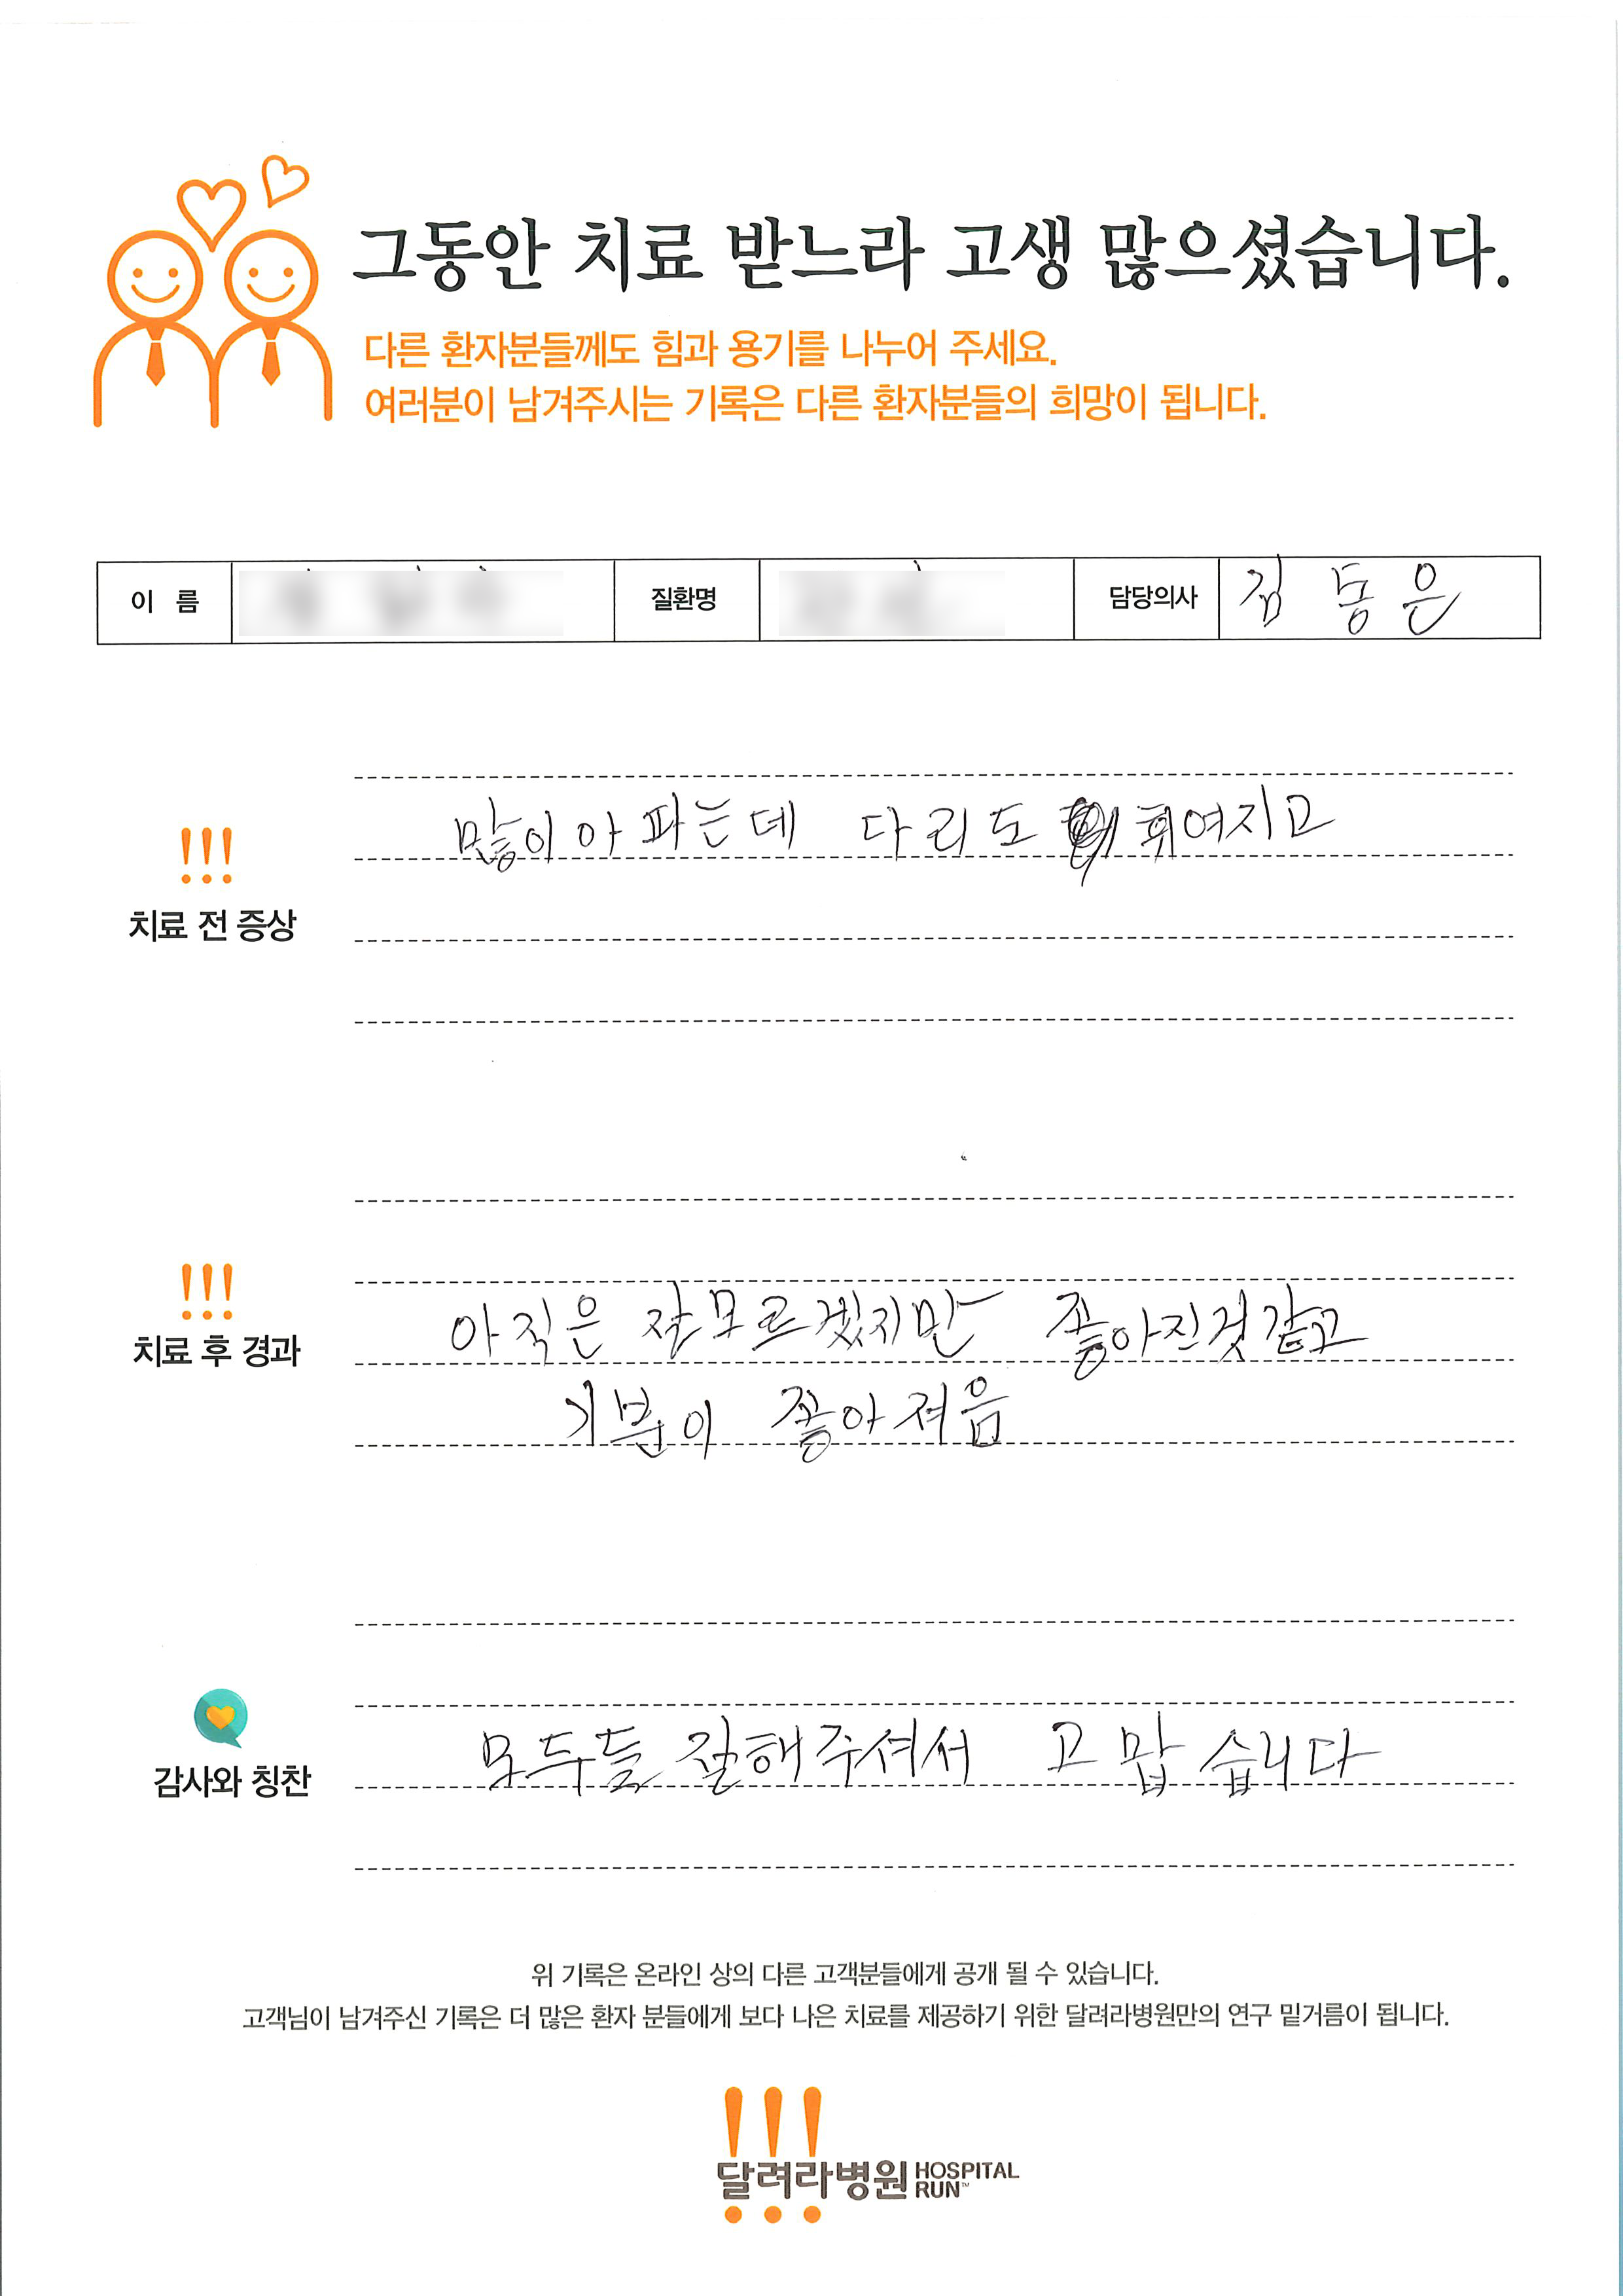 그동안 치료 받느라 고생 많으셨습니다.
다른 환자분들께도 힘과 용기를 나누어 주세요.
여러분이 남겨주시는 기록은 다른 환자분들의 희망이 됩니다.
이 름 질환명 담당의사 김동은
많이 아파는데 다리도 휘여지고
!!!
치료 전 증상
!!!
치료 후 경과
아직은 잘모르겠지만 좋아진것같고
기분이 좋아져음
감사와 칭찬
모두들 잘해주셔서 고맙습니다
위 기록은 온라인 상의 다른 고객분들에게 공개 될 수 있습니다.
고객님이 남겨주신 기록은 더 많은 환자 분들에게 보다 나은 치료를 제공하기 위한 달려라병원만의 연구 밑거름이 됩니다.
!!!
달려라병원 HOSPITAL RUN™